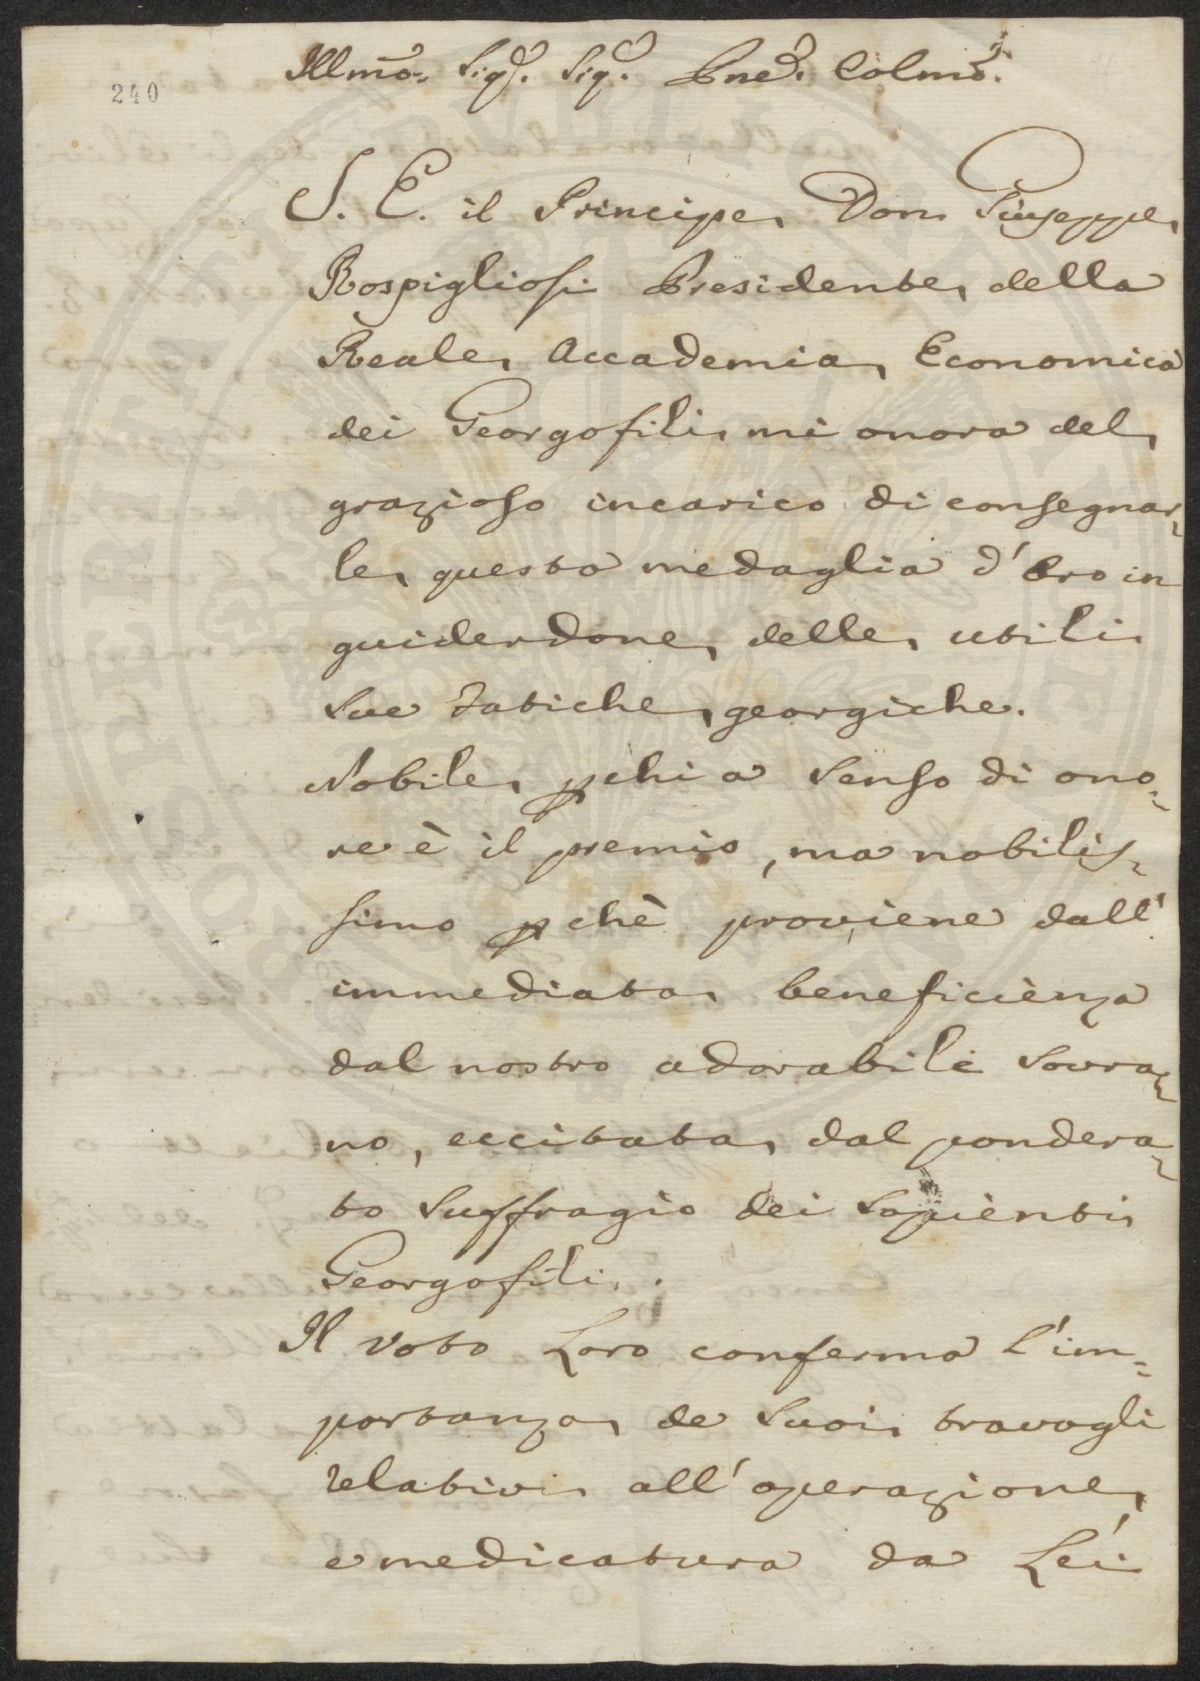 240
Illmo. Sigr. Sigr. Pne. Colmo.
S. E. il Principe Don Giuseppe
Rospigliosi Presidente della
Reale Accademia Economica
dei Georgofili mi onora del
grazioso incarico di consegnar=
le questa medaglia d'Oro in
guiderdone delle utili
Sue fatiche georgiche.
Nobile p chi a senso di ono=
re è il premio, ma nobilis=
simo p chè proviene dall'
immediata beneficienza
dal nostro adorabile Sovra=
no, eccitata dal pondera=
to Suffragio dei Sapienti
Georgofili.
Il voto Loro conferma l'im=
portanza de Suoi travagli
relativi all'operazione
e medicatura da Lei
PROSPERITATI PUBLICAE AUGENDAE